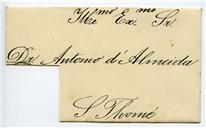 Illmo Exmo Sr
Dr Antonio d'Almeida
S. Thomé